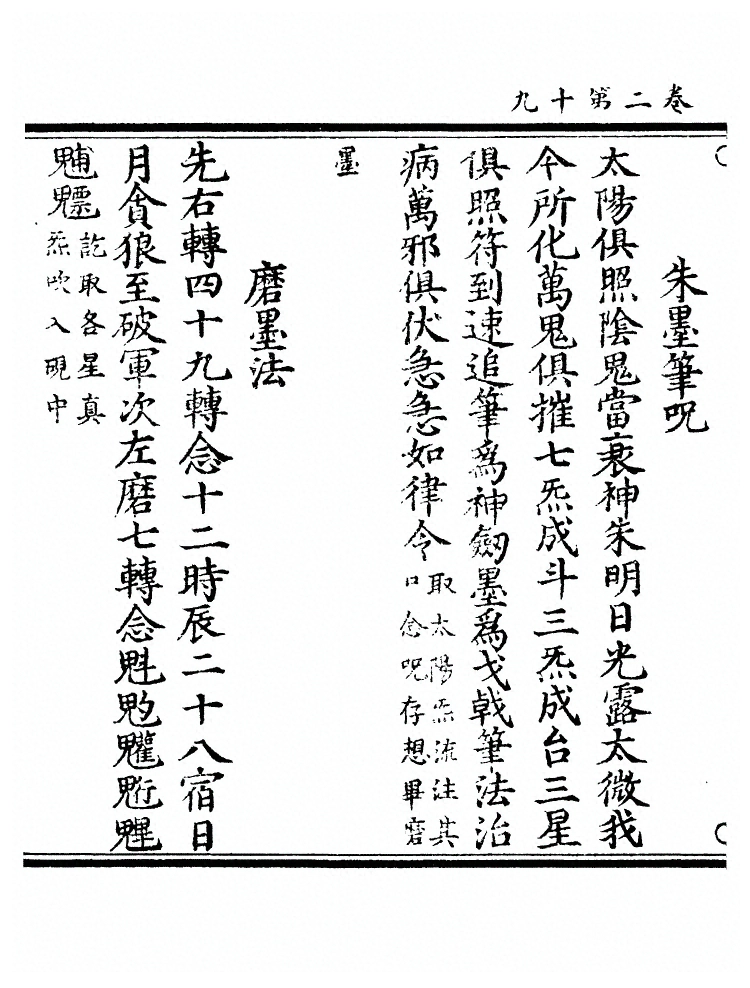 卷二第十九
朱墨筆呪
太陽俱照陰鬼當衰神朱明日光露太微我
今所化萬鬼俱摧七炁成斗三炁成台三星
俱照符到速追筆爲神劔墨爲戈戟筆法治
病萬邪俱伏急急如律令
取太陽炁流注其
口念呪存想畢磨
墨
磨墨法
先右轉四十九轉念十二時辰二十八宿日
月貪狼至破軍次左磨七轉念魁
魒
訖取各星真
炁吹入硯中